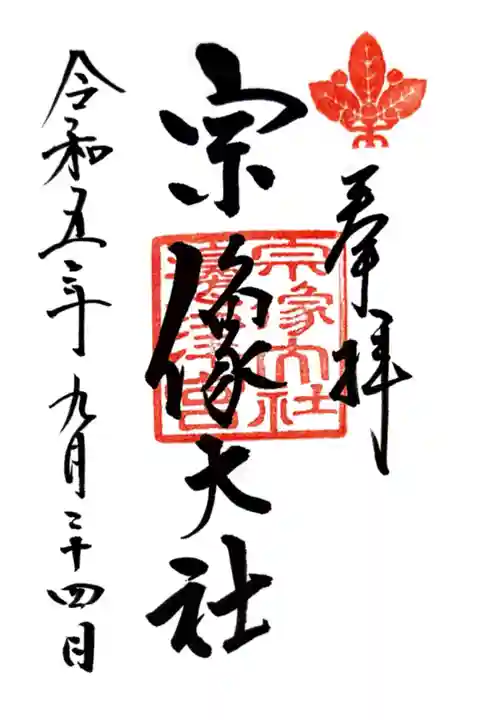 奉拝
宗像大社
宗象大社
邊津宮
令和五年九月二十四日